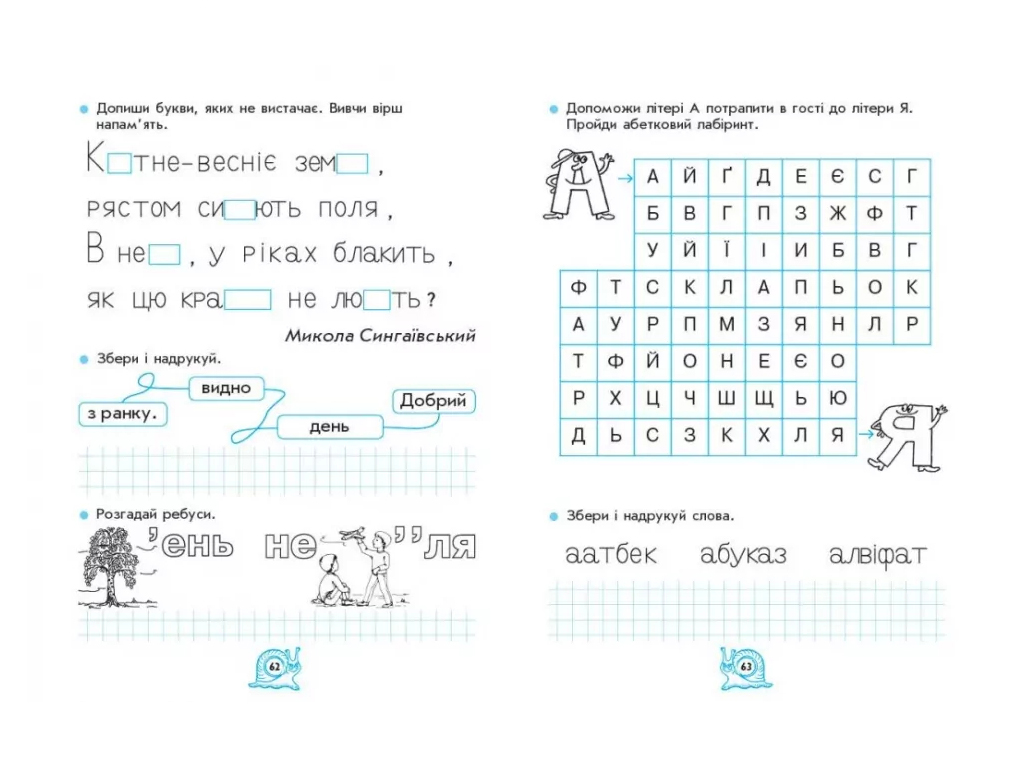 Допиши букви, яких не вистачає. Вивчи вірш
напам'ять.
К□тне-весніє зем□ ,
рястом си□ють поля ,
В не□ , у ріках блакить ,
як цю кра□ не лю□ть ?
Микола Сингаївський
Збери і надрукуй.
видно
Добрий
з ранку.
день
Розгадай ребуси.
'ень не ''ля
62
Допоможи літері А потрапити в гості до літери Я.
Пройди абетковий лабіринт.
А
А Й Ґ Д Е Є С Г
Б В Г П З Ж Ф Т
У Й Ї І И Б В Г
Ф Т С К Л А П Ь О К
А У Р П М З Я Н Л Р
Т Ф Й О Н Е Є О
Р Х Ц Ч Ш Щ Ь Ю
Д Ь С З К Х Л Я
Я
Збери і надрукуй слова.
аатбек абуказ алвіфат
63